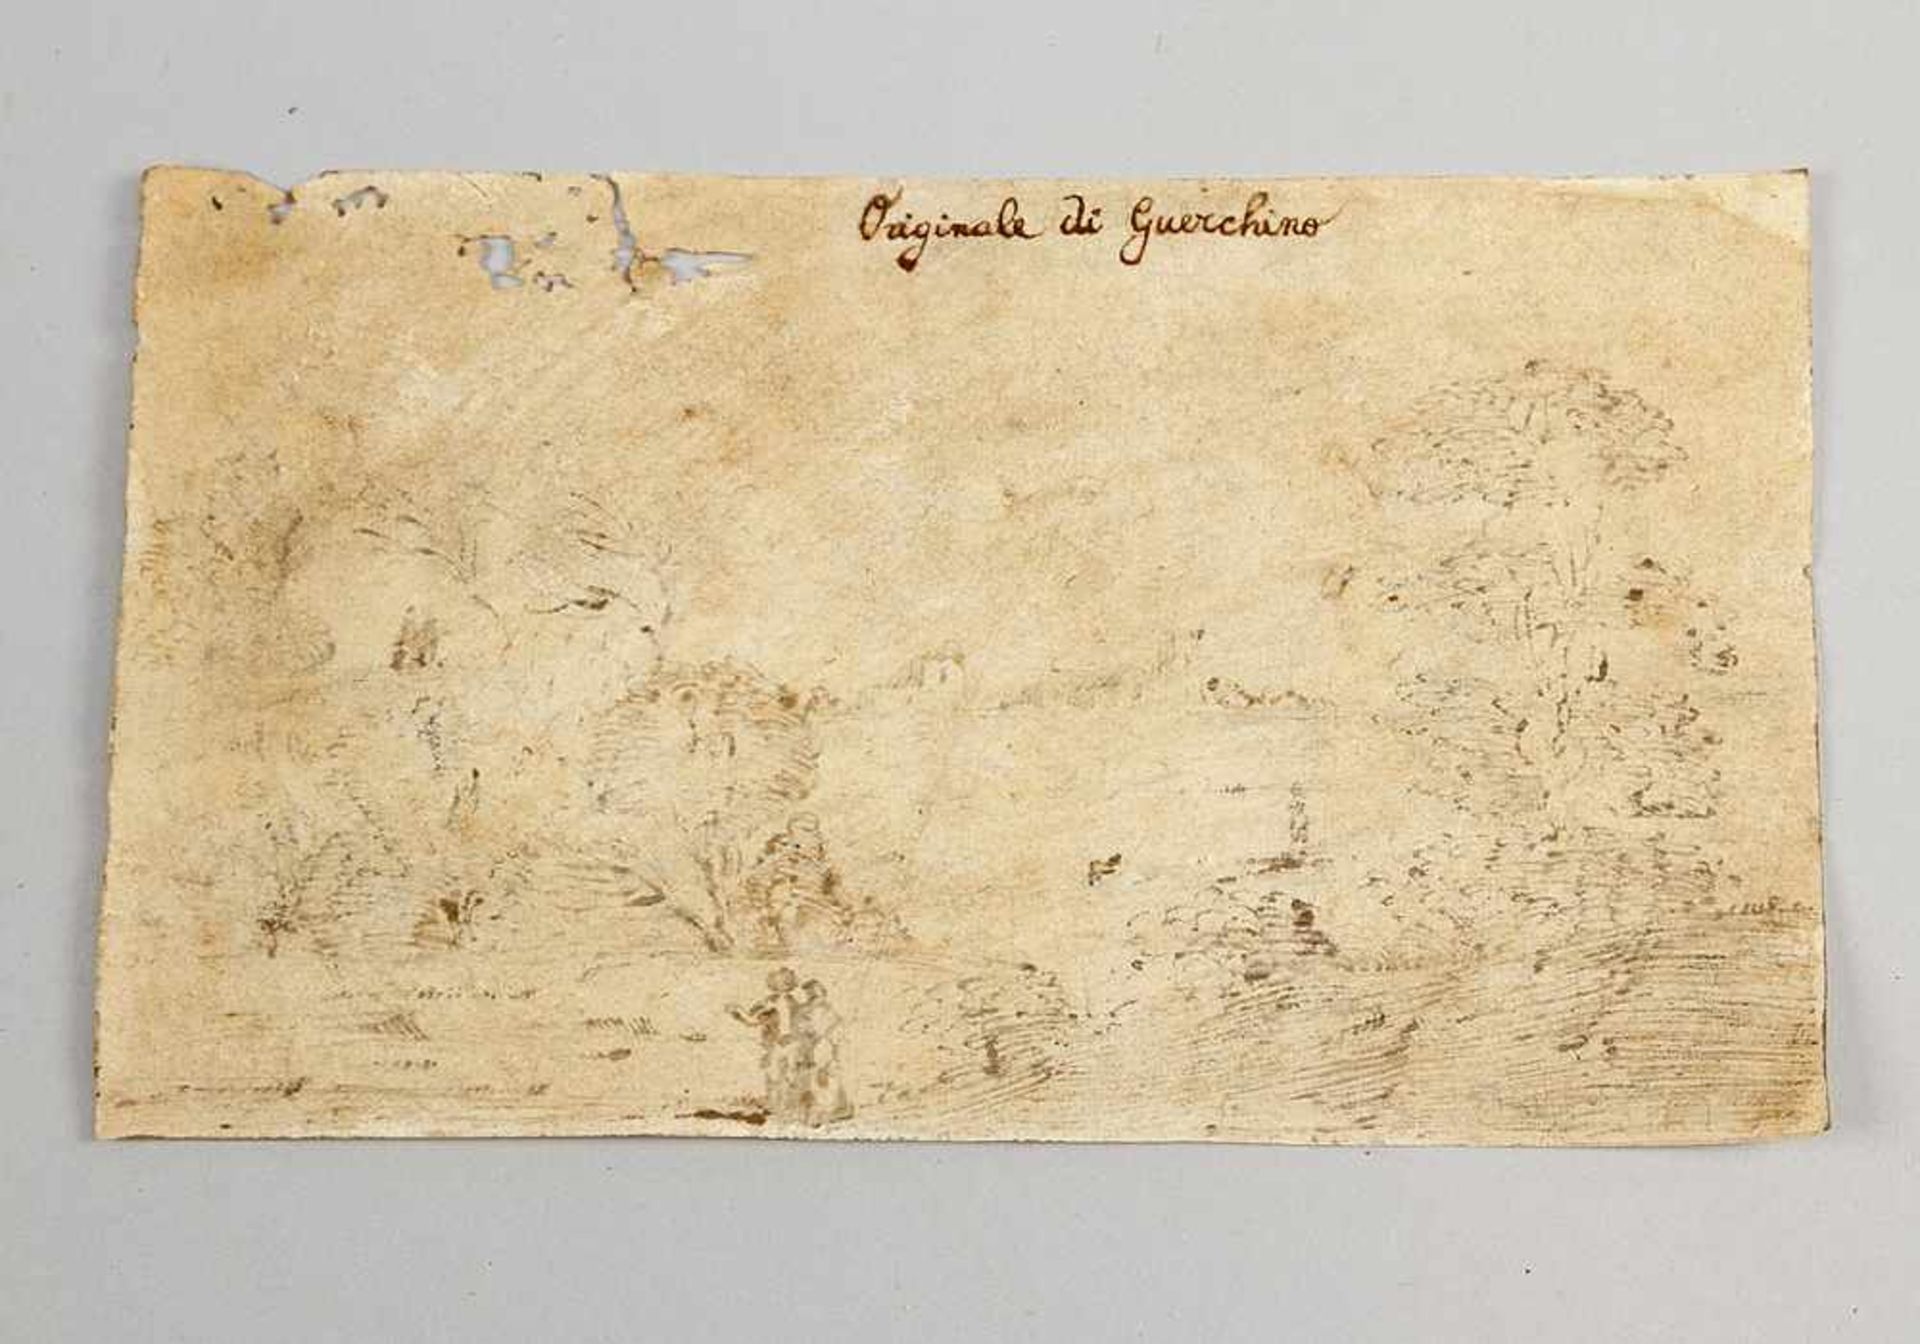 Originale di Guerchino